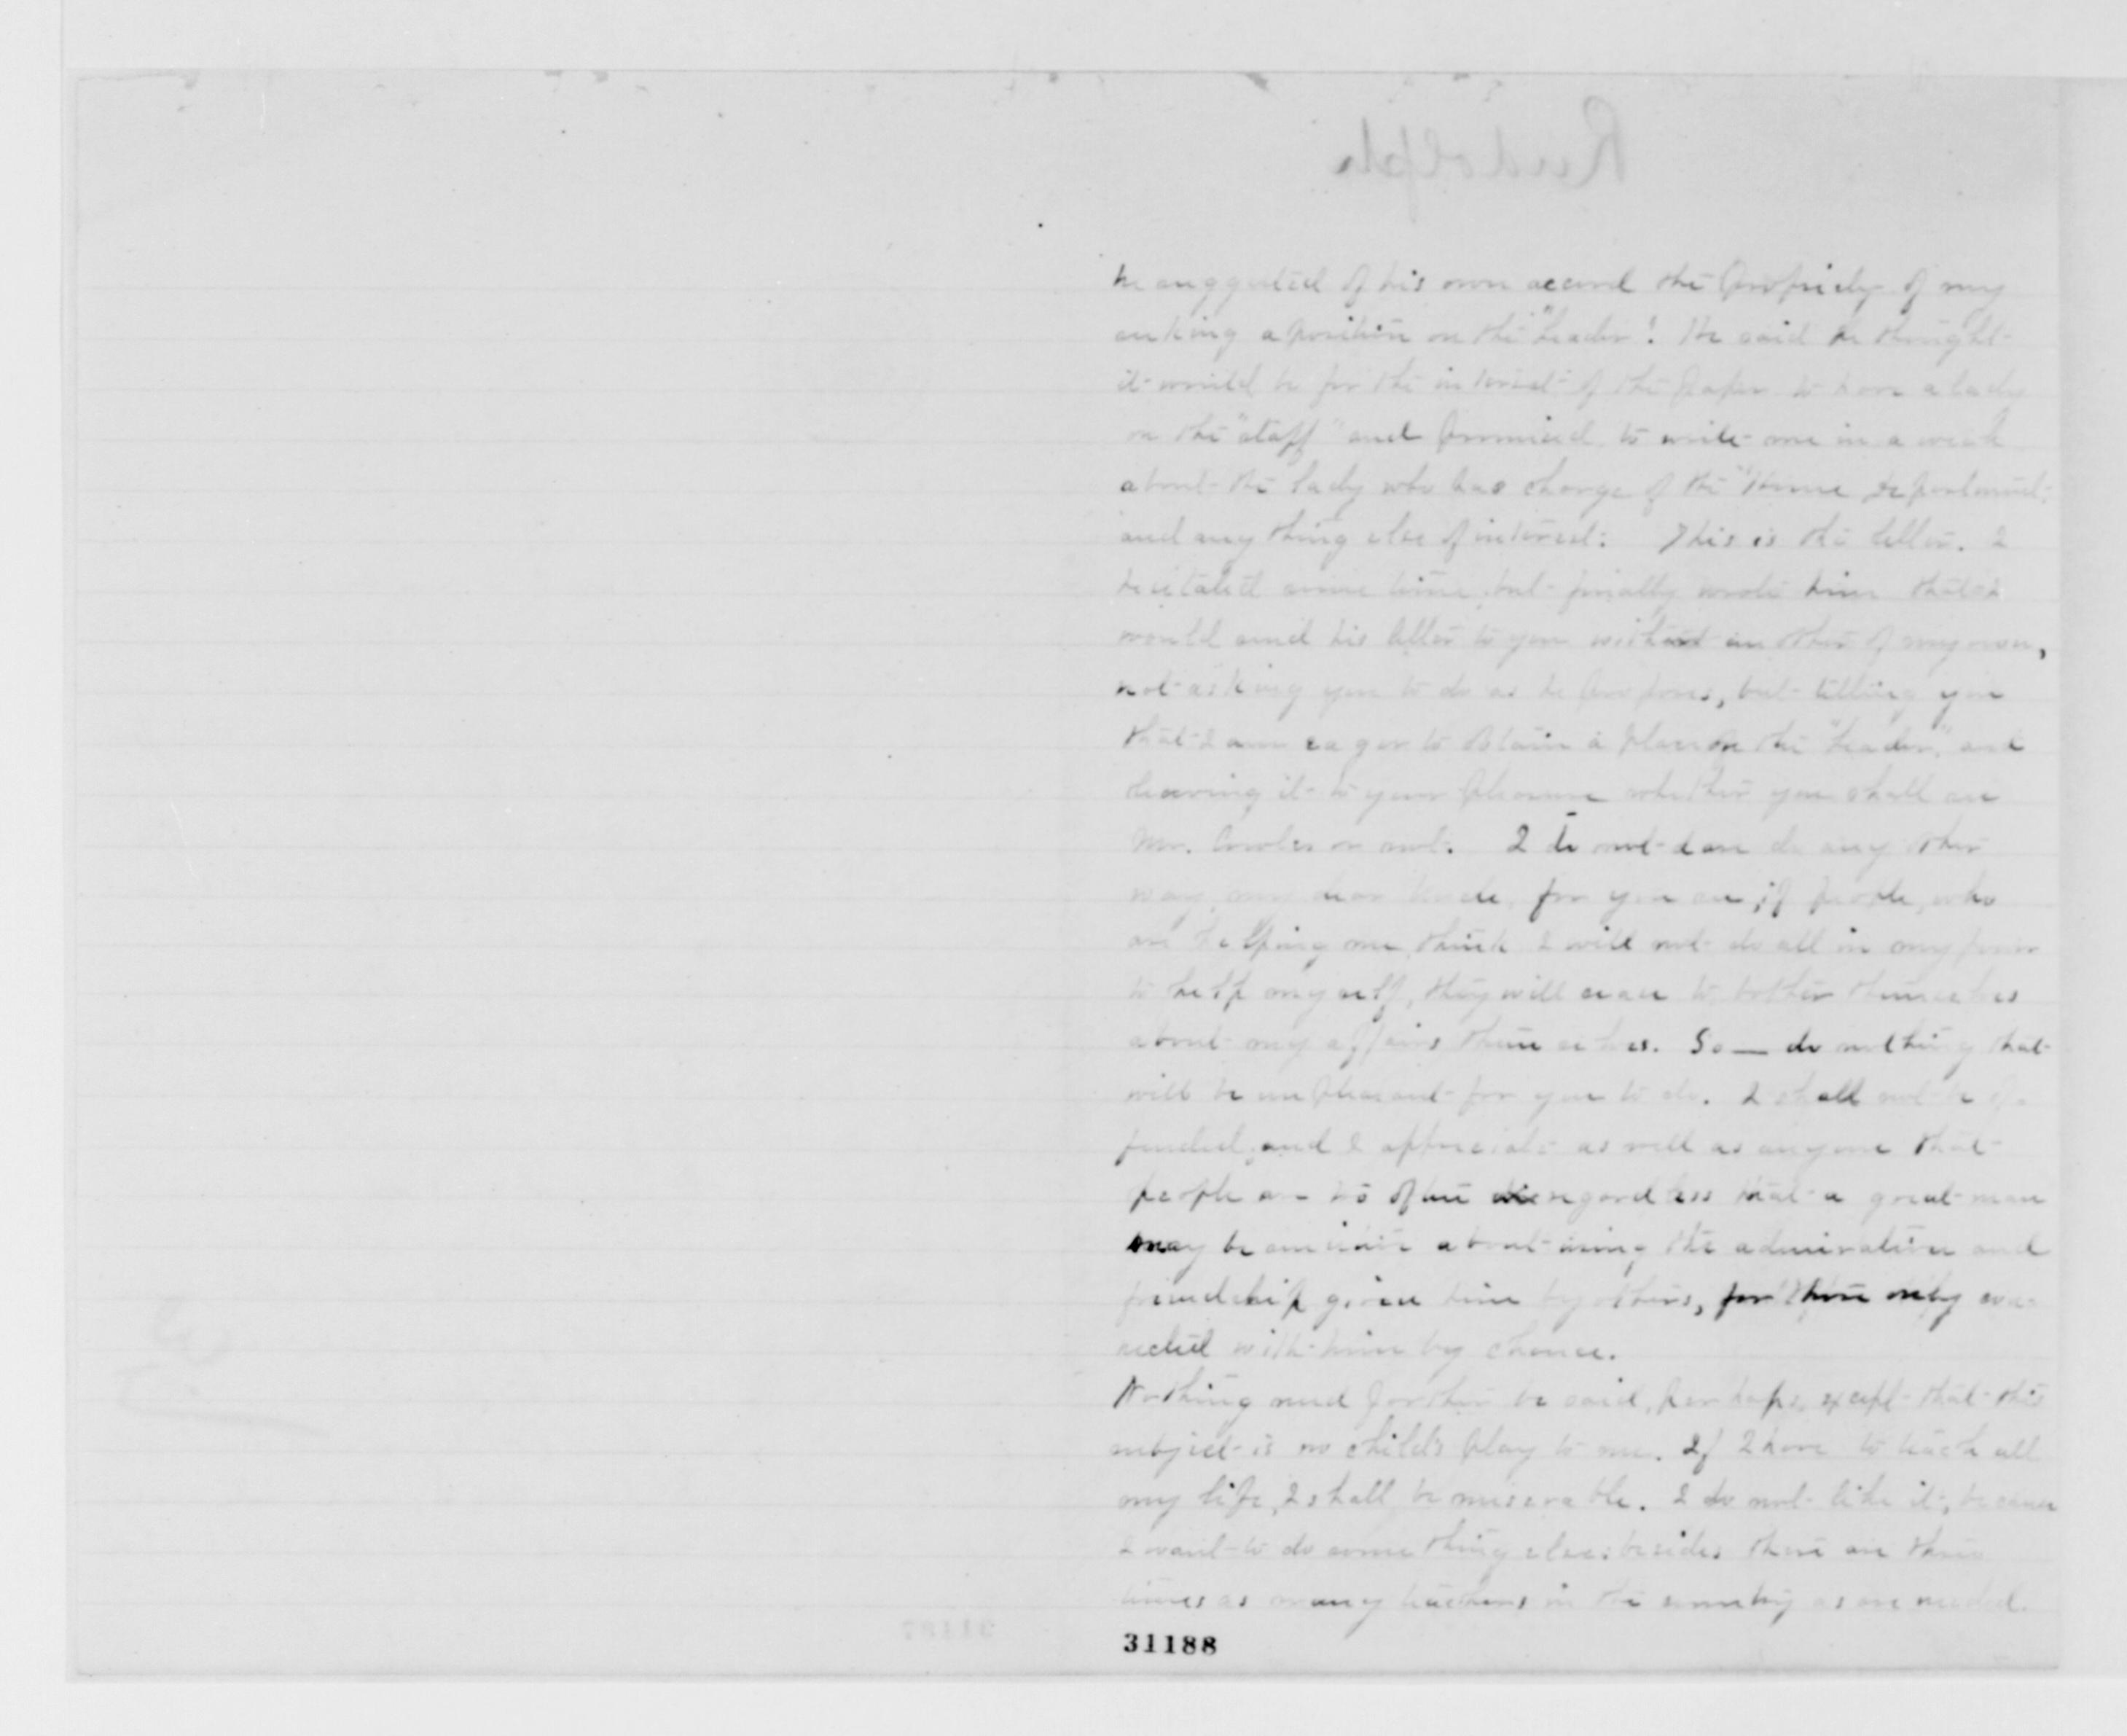 Rudolph
he suggested of his own accord the propriety of my
asking a position on the "Leader"! He said he thought
it would be for the interest of the paper to have a lady
on the "staff" and promised to write me in a week
about the lady who has charge of the "Home Department"
and any thing else of interest. This is the letter. I
hesitated some time, but finally wrote him that I
would send his letter to you with another of my own,
not asking you to do as he proposes, but telling you
that I am eager to obtain a place on the "Leader," and
leaving it to your pleasure whether you shall see
Mr. Cowles or not. I do not dare do any other
way, my dear Uncle, for you see, if people, who
are helping me, think I will not do all in my power
to help myself, they will cease to bother themselves
about my affairs themselves. So — do nothing that
will be unpleasant for you to do. I shall not be of-
fended, and I appreciate as well as anyone that
people are too often regardless that a great man
may be about using the admiration and
friendship given him by others, for those only con-
nected with him by chance.
Nothing need further be said, perhaps, except that this
subject is no child's play to me. If I have to teach all
my life, I shall be miserable. I do not like it, because
I want to do something else: besides there are three
times as many teachers in the country as are needed.
31188
31187